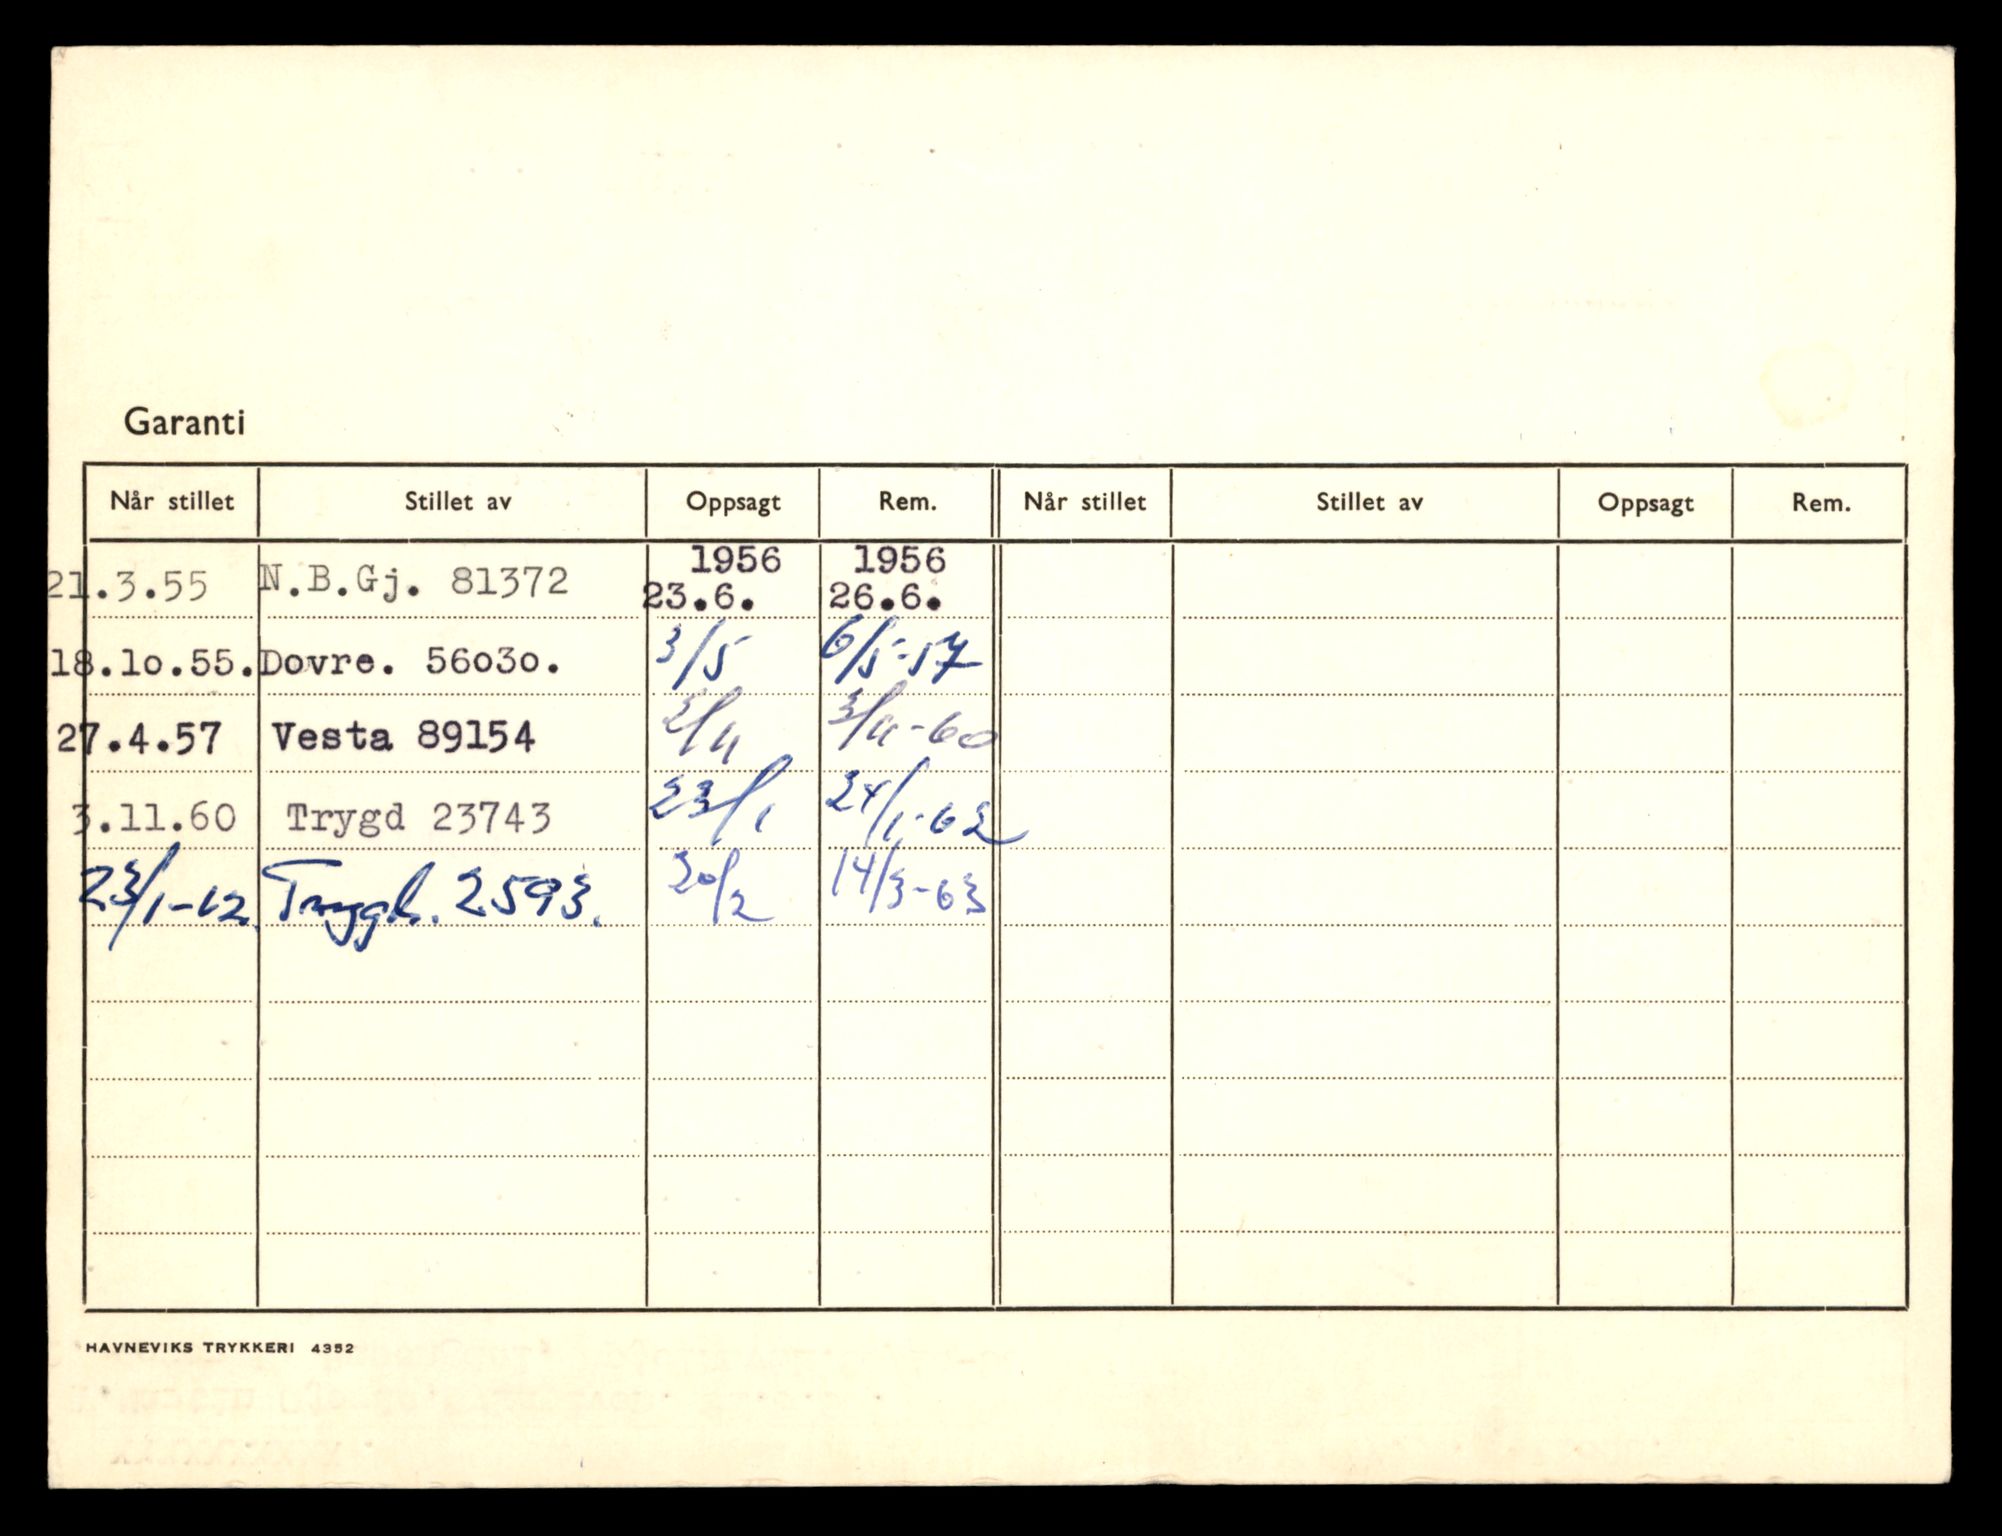 Garanti
Når stillet Stillet av Oppsagt Rem. Når stillet Stillet av Oppsagt Rem.
1956 1956
21.3.55 N.B.Gj. 81372 23.6. 26.6.
18.10.55. Dovre. 56030. 3/5 6/5-57
27.4.57 Vesta 89154 2/11 3/11-60
3.11.60 Trygd 23743 23/1 24/1-62
23/1-62. Trygd. 2593. 20/2 14/3-63
HAVNEVIKS TRYKKERI 4352